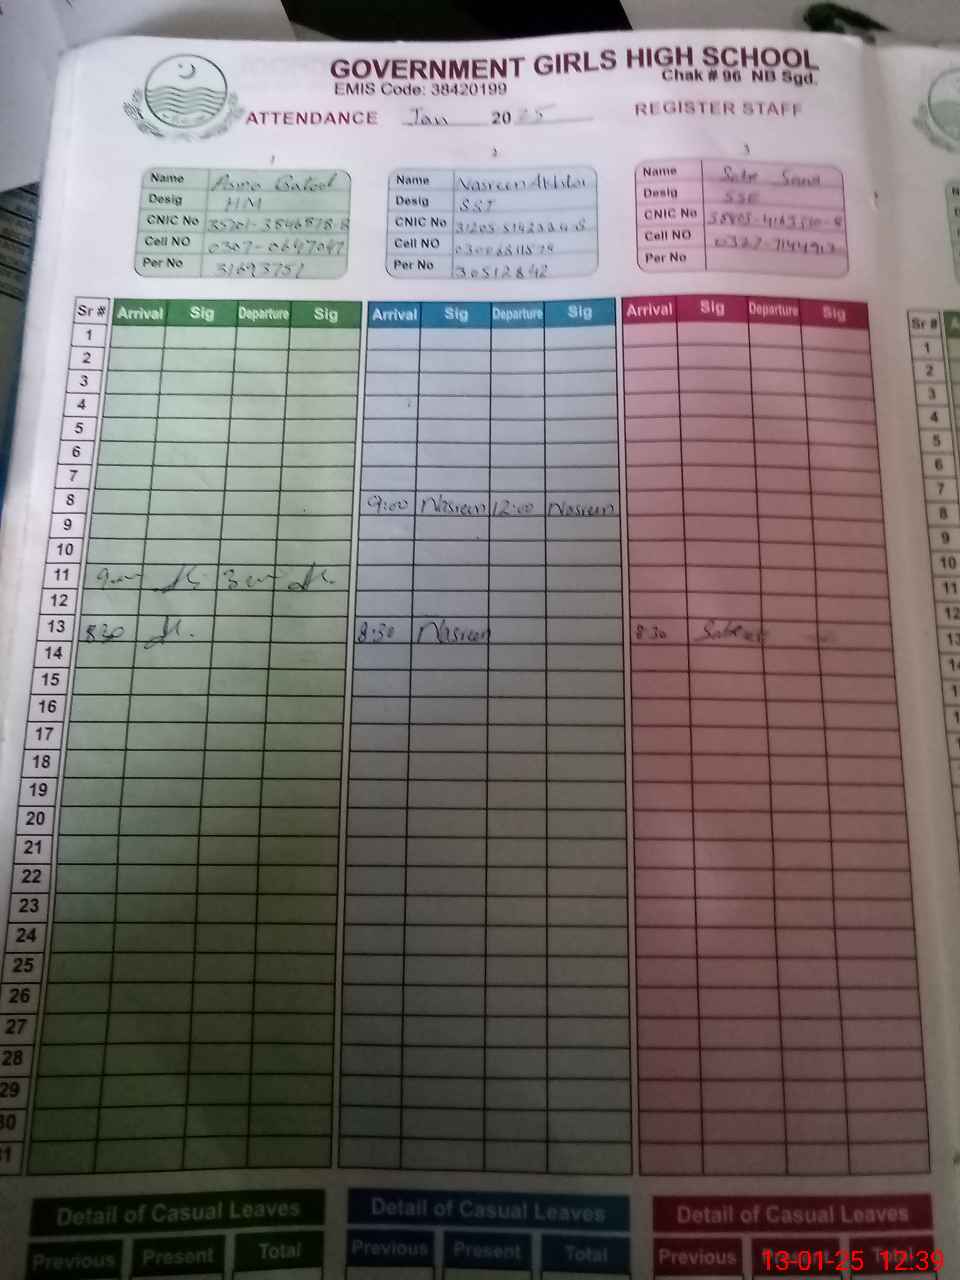 GOVERNMENT GIRLS HIGH SCHOOL
Chak # 96 NB Sgd.
EMIS Code: 38420199
ATTENDANCE Jan 2025 REGISTER STAFF
1 2 3
Name Asma Batool
Desig HM
CNIC No
Cell NO 0307-0647047
Per No 31693757
Name Nasreen Akhtar
Desig SST
CNIC No
Cell NO
Per No 30512842
Name
Desig SSE
CNIC No
Cell NO
Per No
Sr # Arrival Sig Departure Sig Arrival Sig Departure Sig Arrival Sig Departure Sig
1
2
3
4
5
6
7
8 9:00 Nasreen 12:00 Nasreen
9
10
11
12
13 830 8:30 Nasreen 8:30
14
15
16
17
18
19
20
21
22
23
24
25
26
27
28
29
30
31
Detail of Casual Leaves Detail of Casual Leaves Detail of Casual Leaves
Previous Present Total Previous Present Total Previous Total
Sr #
1
2
3
4
5
6
7
8
9
10
11
12
13
13-01-25 12:39